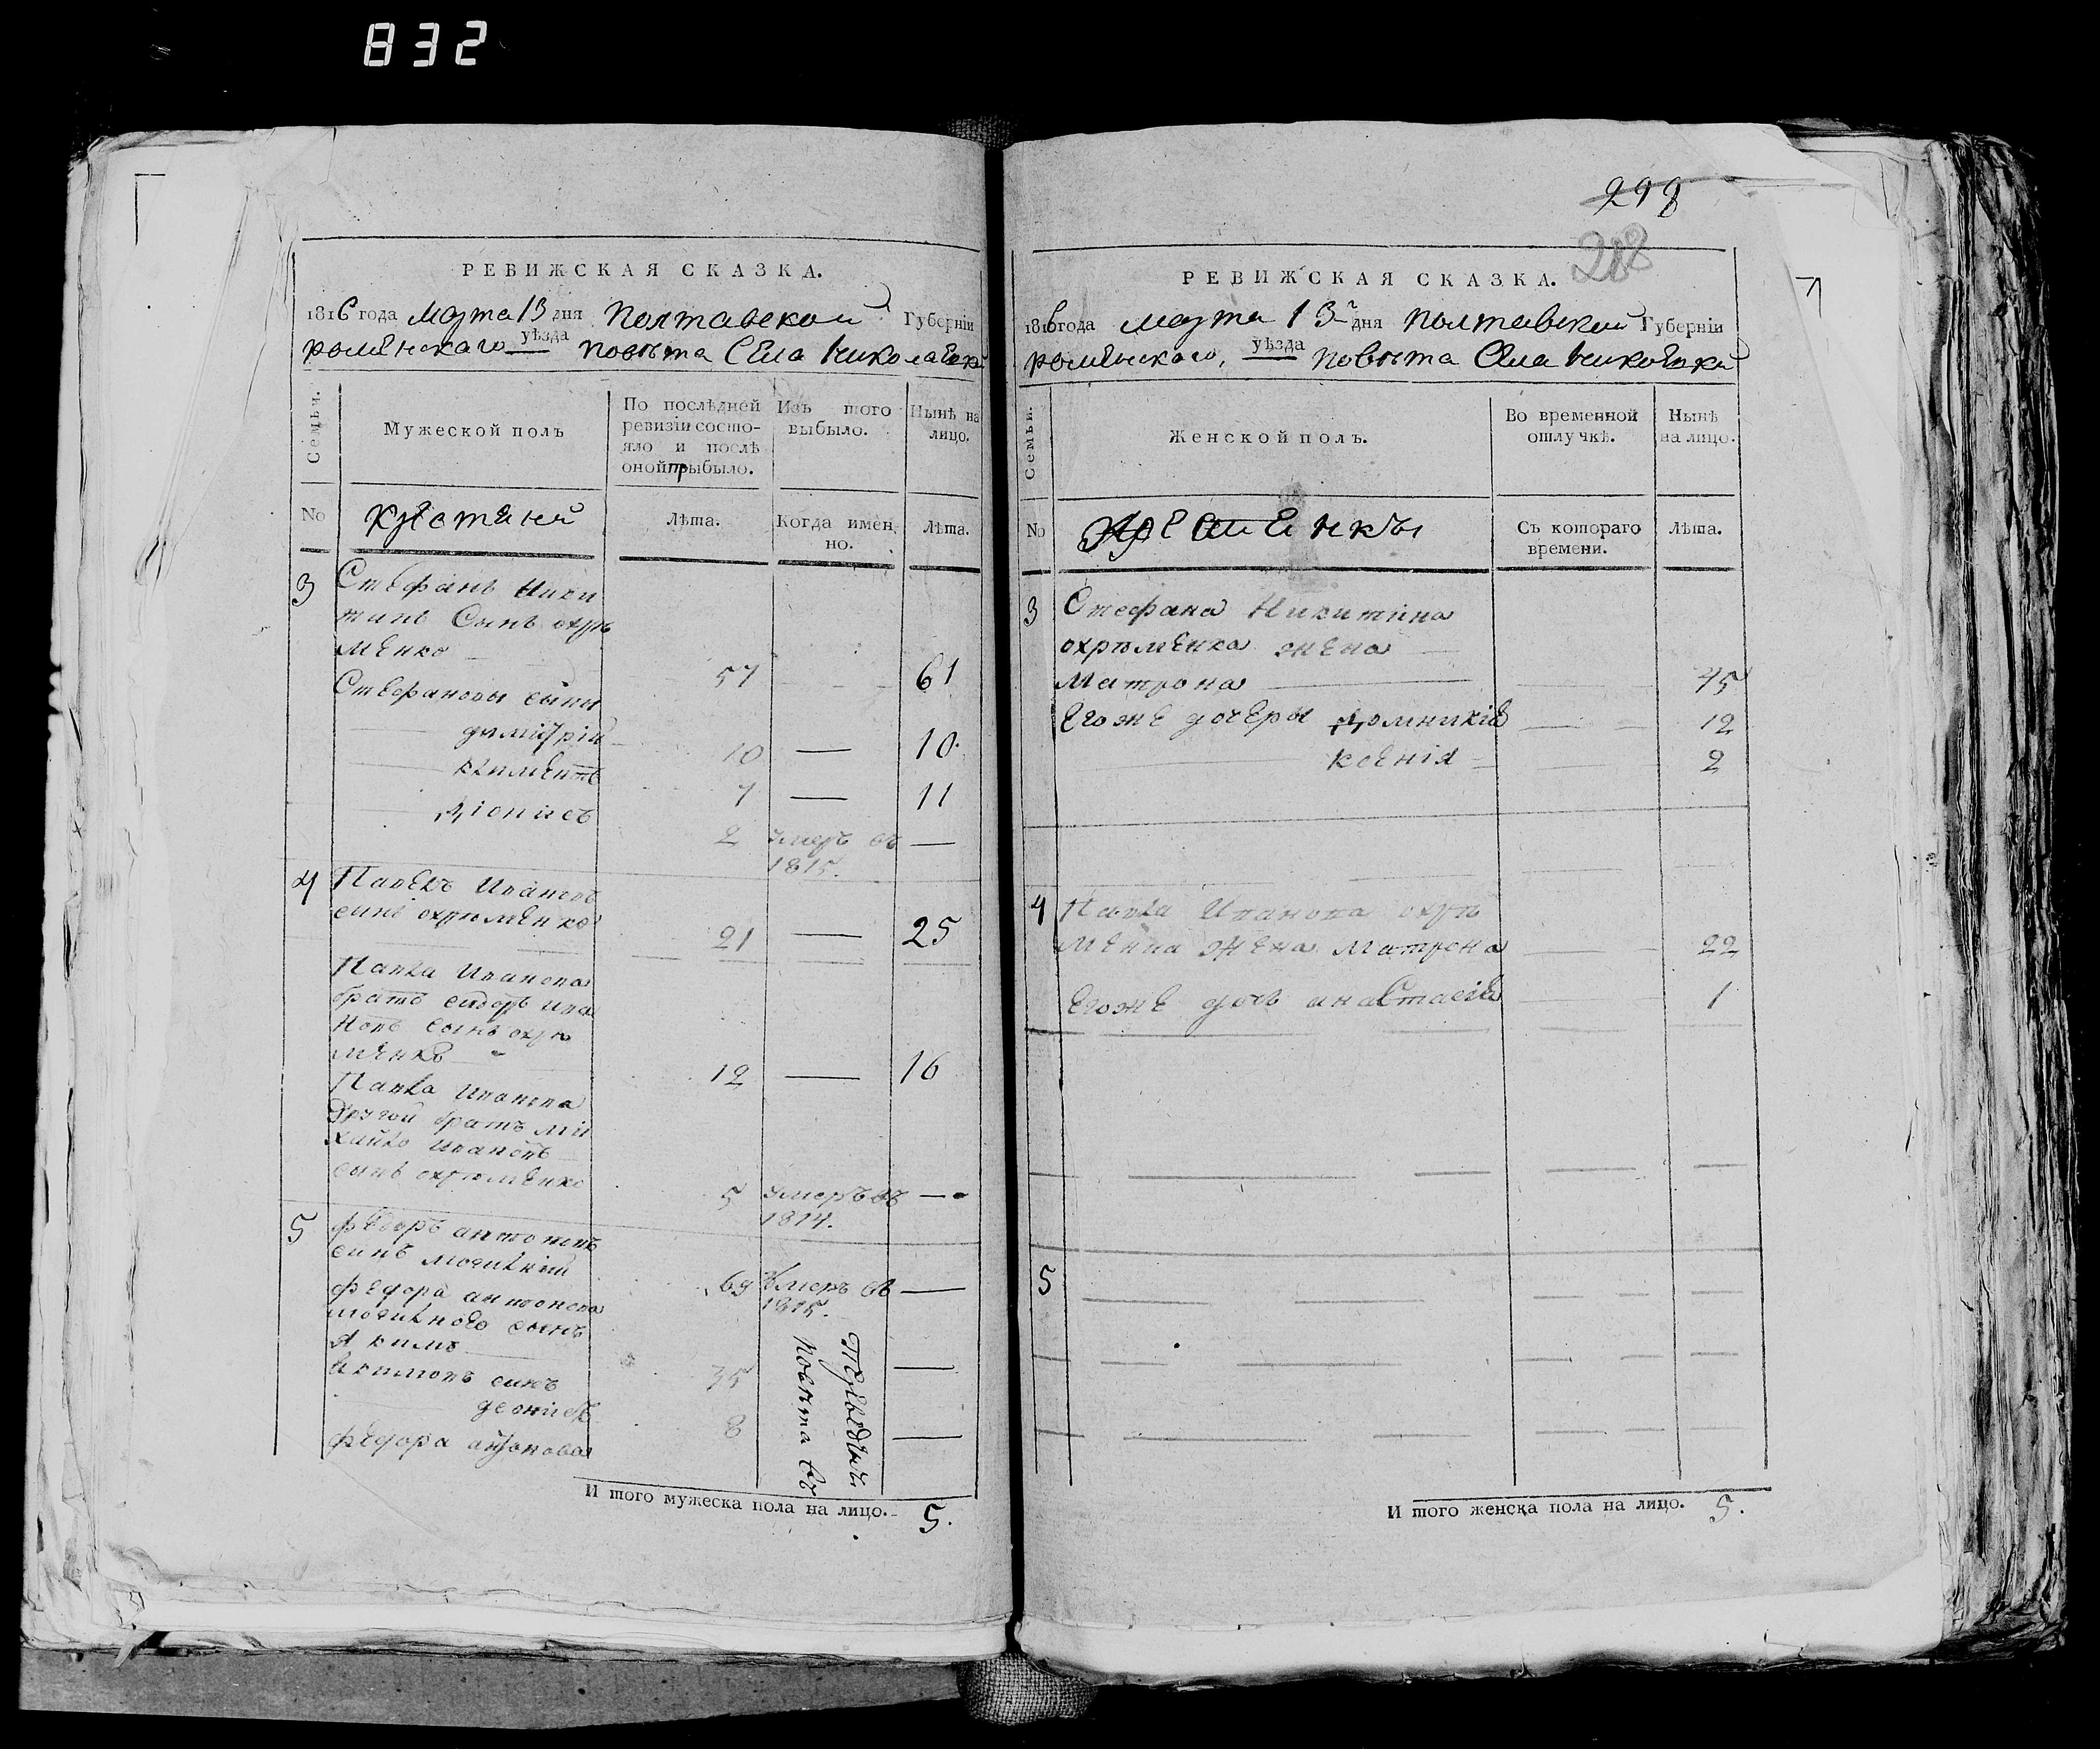 832
РЕВИЖСКАЯ СКАЗКА.
1816 года марта 13 дня Полтавской Губерніи
роменскаго уѣзда повѣта Села Николаевки
Семьи.
Мужеской полъ
По послѣдней ревизіи состояло и послѣ оной прыбыло.
Изъ того выбыло.
Нынѣ на лицо.
No
Лѣта.
Когда именно.
Лѣта.
3 Стефанъ Ники
тинъ Сынъ охрѣ
менко 57 61
Стефановы сыни
димитрій 10 — 10.
климентъ 7 — 11
Діонисъ 2 умеръ въ —
1815.
4 Павелъ Ивановъ
синъ охрѣменко 21 — 25
Павла Иванова
братъ сидоръ Ива
новъ сынъ охрѣ
менко 12 — 16
Павла Иванова
другой братъ Ми
хайло Ивановъ
синъ охрѣменко 5 умеръ въ —
1814.
5 федоръ антоновъ
синъ 69 Умеръ въ —
1815.
федора антонова
сынъ
Якимъ 35 —
Якимовъ синъ
деонисъ 8 —
федора антонова
повѣта въ
И того мужеска пола на лицо. 5.
298
288
РЕВИЖСКАЯ СКАЗКА.
1816 года марта 13 дня Полтавской Губерніи
роменскаго, уѣзда повѣта Села
Семьи.
Женской полъ.
Во временной отлучкѣ.
Нынѣ на лицо.
No
Съ котораго времени.
Лѣта.
3 Стефана Никитина
охрѣменка жена
Матрона 45
Егоже дочеры Домникія 12
Ксенія 2
4 Павла Иванова охрѣ
менка жена Матрона 22
Егоже дочь анастасія 1
5
И того женска пола на лицо. 5.